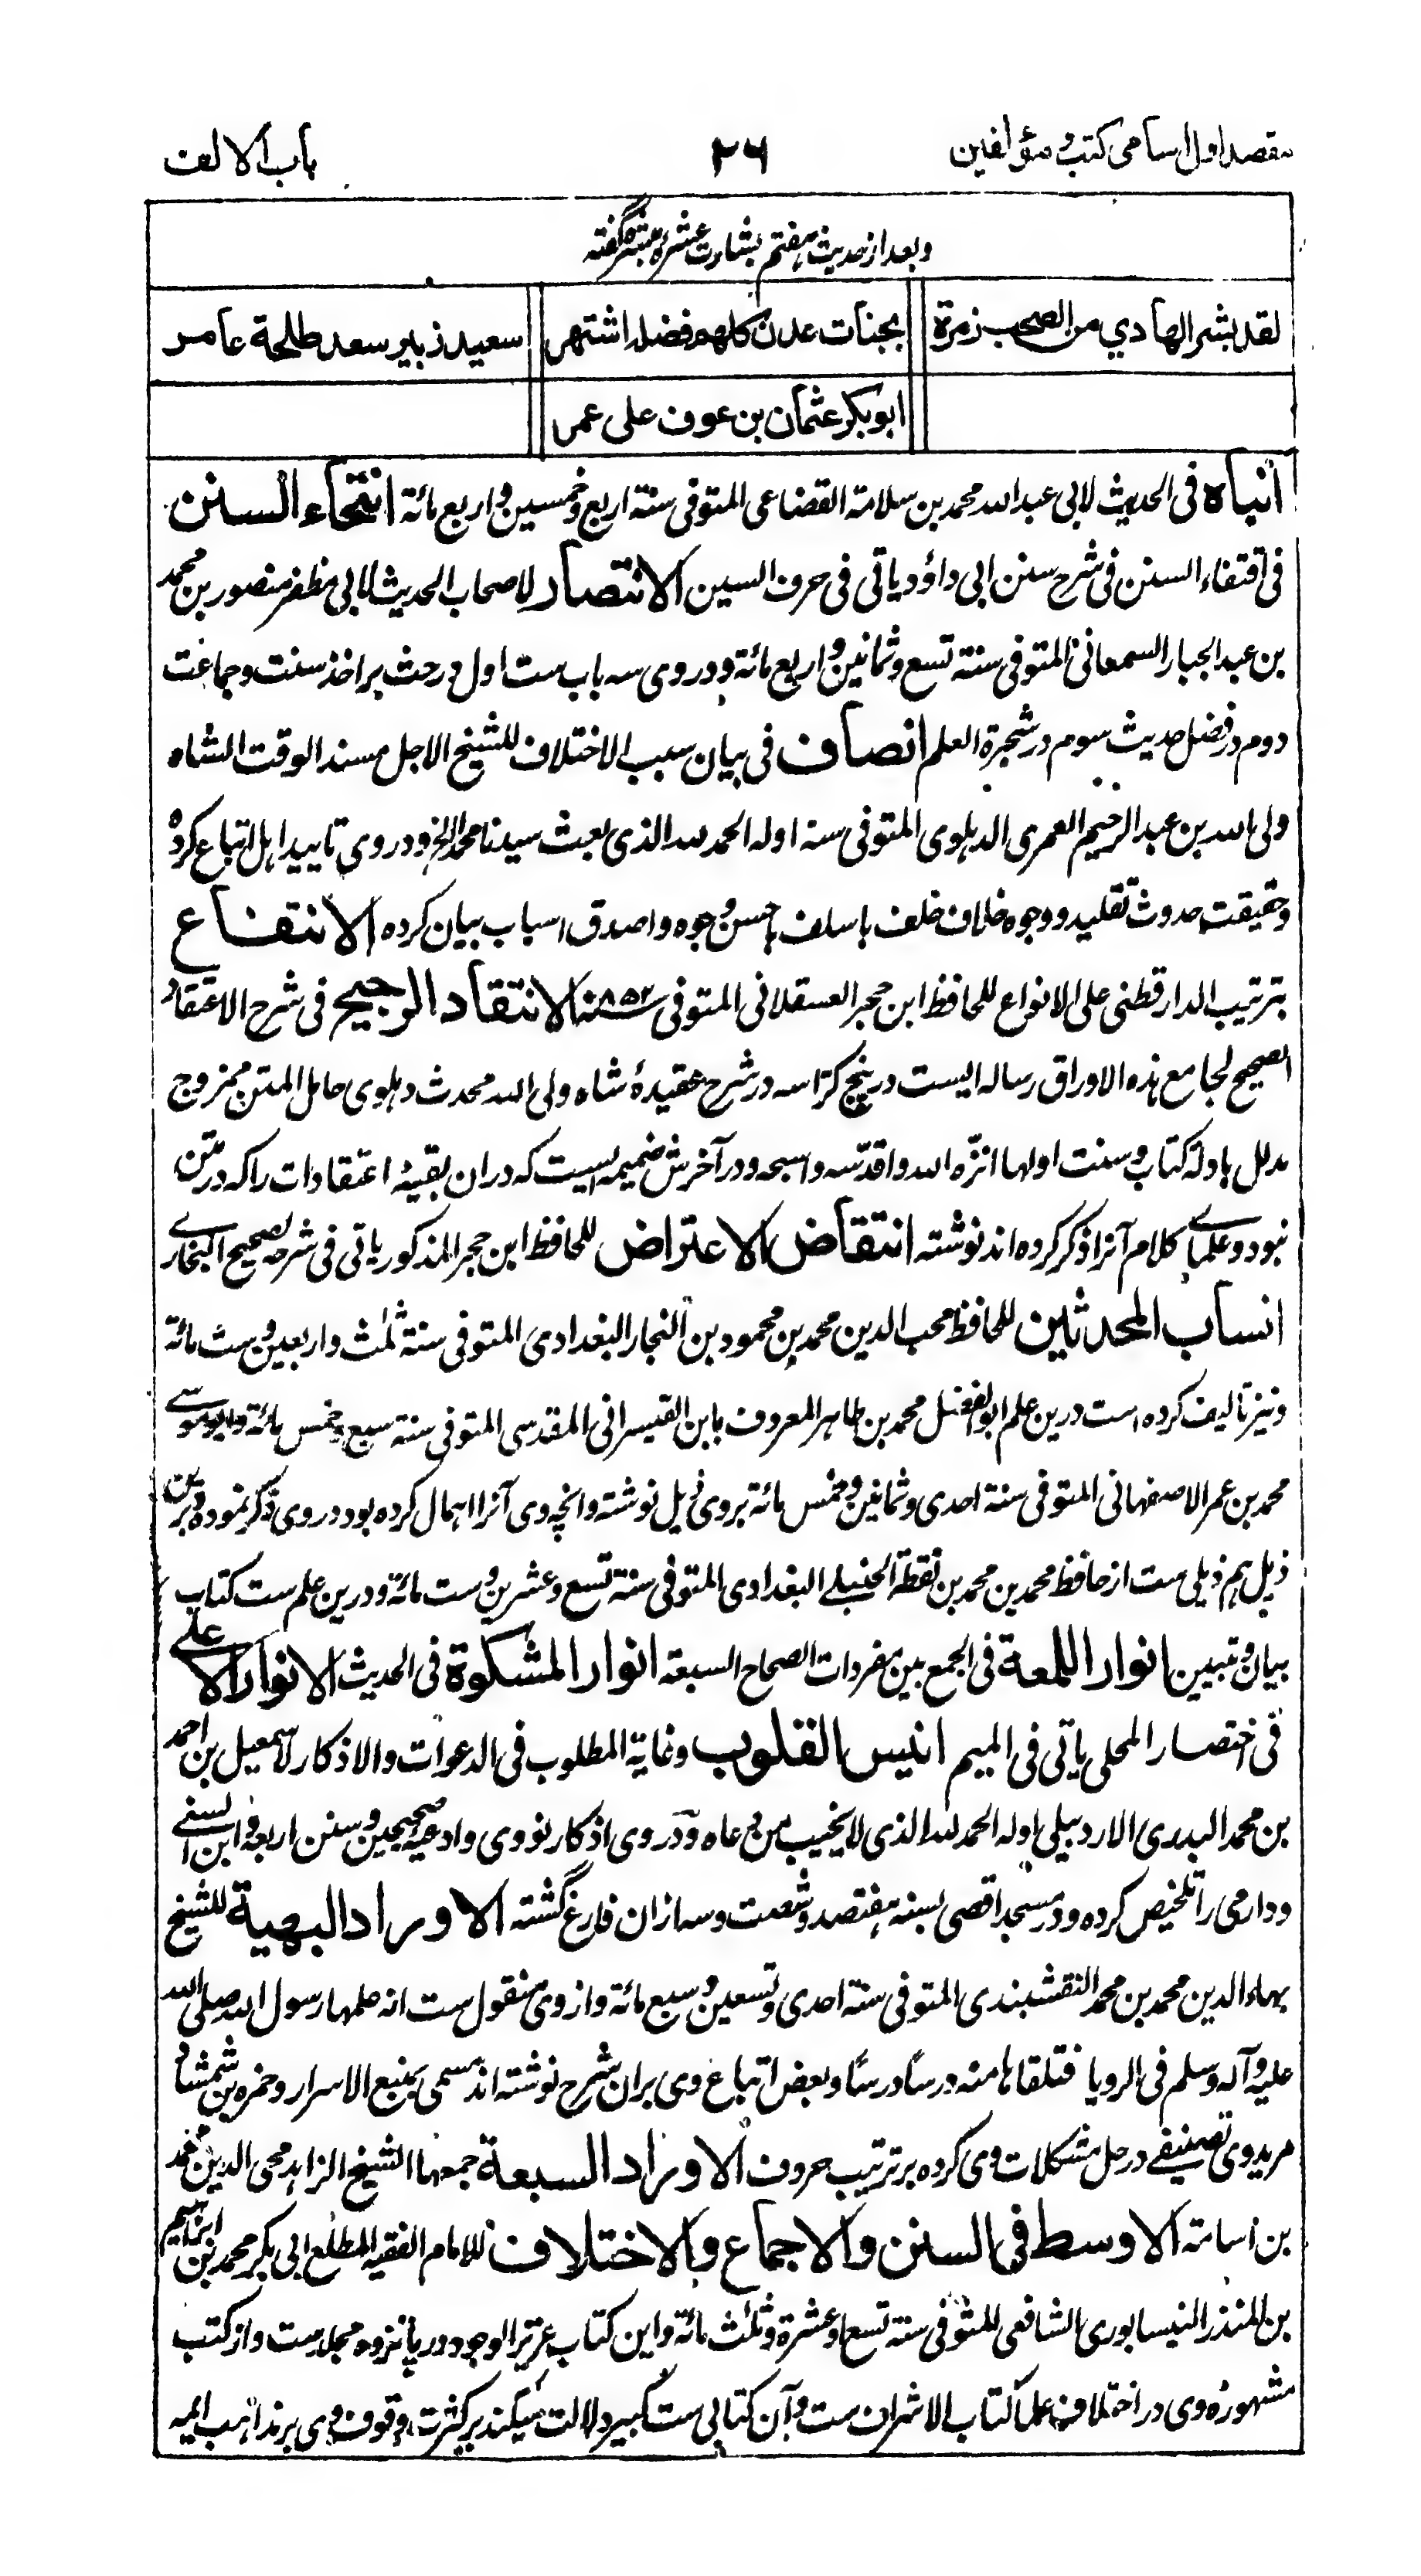 مقصد اول اسامی کتب و مؤلفین
۲۶
باب الالف
و بعد از حدیث هفتم بشارت عشرهٔ مبشره گفته
لقد بشر الهادي من الصحب زمرة
بجنات عدن کلهم فضله اشتهر
سعید زبیر سعد طلحة عامر
ابوبکر عثمان بن عوف علی عمر
انباه فی الحدیث لابی عبد الله محمد بن سلامة القضاعی المتوفی سنة اربع و خمسین و اربع مائة انتحاء السنن
فی اقتفاء السنن فی شرح سنن ابی داؤد یاتی فی حرف السین الانتصار لاصحاب الحدیث لابی مظفر منصور بن محمد
بن عبد الجبار السمعانی المتوفی سنة تسع و ثمانین و اربع مائة و در وی سه باب ست اول در حث بر اخذ سنت و جماعت
دوم در فضل حدیث سوم در شجرة العلم انصاف فی بیان سبب الاختلاف للشیخ الاجل مسند الوقت الشاه
ولی الله بن عبد الرحیم العمری الدهلوی المتوفی سنه اوله الحمد لله الذی بعث سیدنا محمد الخ و در وی تایید اهل اتباع کرده
و حقیقت حدوث تقلید و وجوه خلاف خلف با سلف باحسن وجوه و اصدق اسباب بیان کرده الانتفاع
بترتیب الدارقطنی علی الانواع للحافظ ابن حجر العسقلانی المتوفی سنة ۸۵۲ الانتقاد الرجیح فی شرح الاعتقاد
الصحیح لجامع هذه الاوراق رساله ایست در پنج کراسه در شرح عقیدهٔ شاه ولی الله محدث دهلوی حامل المتن ممزوج
مدلل بادلهٔ کتاب و سنت اولها انزه الله و اقدسه و اسبحه و در آخرش ضمیمه ایست که دران بقیهٔ اعتقادات را که در متن
نبود و علمای کلام آنرا ذکر کرده اند نوشته انتقاض الاعتراض للحافظ ابن حجر المذکور یاتی فی شرح صحیح البخاری
انساب المحدثین للحافظ محب الدین محمد بن محمود بن النجار البغدادی المتوفی سنة ثلث و اربعین و ست مائة
و نیز تالیف کرده است درین علم ابو الفضل محمد بن طاهر المعروف بابن القیسرانی المقدسی المتوفی سنة سبع و خمس مائة و ابو موسی
محمد بن عمر الاصفهانی المتوفی سنة احدی و ثمانین و خمس مائة بروی ذیل نوشته و انچه وی آنرا اهمال کرده بود در وی ذکر نموده و برین
ذیل هم ذیلی ست از حافظ محمد بن محمد بن نقطة الحنبلی البغدادی المتوفی سنة تسع و عشرین و ست مائة و درین علم ست کتاب
بیان و تبیین انوار اللمعة فی الجمع بین مفردات الصحاح السبعة انوار المشکوة فی الحدیث الانوار الاعلی
فی اختصار المحلی یاتی فی المیم انیس القلوب و غایة المطلوب فی الدعوات و الاذکار لاسمعیل بن احمد
بن محمد البدری الاردبیلی اوله الحمد لله الذی لا یخیب من دعاه و در وی اذکار نووی و ادعیه صحیحین و سنن اربعه و ابن السنی
و دارمی را تلخیص کرده و در مسجد اقصی بسنه هفتصد و شصت و سه ازان فارغ گشته الاوراد البهیة للشیخ
بهاء الدین محمد بن محمد النقشبندی المتوفی سنة احدی و تسعین و سبع مائة و از وی منقول ست انه علمها رسول الله صلی الله
علیه و آله و سلم فی الرویا فتلقاها منه درسا درسا و بعض اتباع وی بران شرح نوشته اند مسمی بمنبع الاسرار و حمزه بن شمشاد
مرید وی تصنیفی در حل مشکلات وی کرده بر ترتیب حروف الاوراد السبعة جمعها الشیخ الزاهد محی الدین محمد
بن اسامة الاوسط فی السنن والاجماع والاختلاف للامام الفقیه المطلع ابی بکر محمد بن ابراهیم
بن المنذر النیسابوری الشافعی المتوفی سنة تسع او عشرة و ثلث مائة و این کتاب عزیز الوجود در پانزده مجلد ست و از کتب
مشهوره وی در اختلاف علما کتاب الاشراف ست و آن کتابی ست کبیر دلالت میکند بر کثرت وقوف وی بر مذاهب ائمه